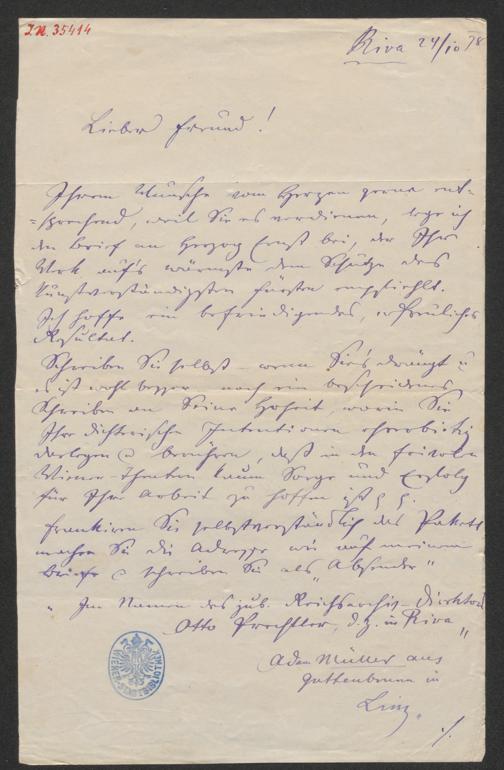 I.N. 35414
Riva 24/10 78
Lieber Freund!
Ihrem Wunsche vom Herzen gerne ent-
sprechend, weil Sie es verdienen, lege ich
den Brief an Herzog Ernst bei, der Ihr
Werk auf's wärmste dem Schutze des
kunstverständigsten Fürsten empfiehlt.
Ich hoffe ein befriedigendes, erfreuliches
Resultat.
Schreiben Sie selbst – wenn Sie's drängt u
es ist wohl besser – noch ein bescheidenes
Schreiben an Seine Hoheit, worin Sie
Ihre dichterischen Intentionen ehrerbietig
darlegen & berühren, daß in den frivolen
Wiener Theatern kaum Sorge und Erfolg
für Ihre Arbeit zu hoffen ist
Frankiren Sie selbstverständlich das Paket
machen Sie die Adresse wie auf meinem
Briefe & schreiben Sie als "Absender"
"Im Namen des jub. Reichsarchiv-Direktors
Otto Prechtler, d.z. in Riva"
Adam Müller aus
Guttenbrunn in
Linz.
./.
WIENER STADTBIBLIOTHEK